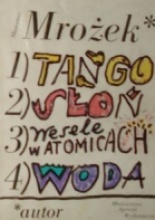 Mrożek*
1) TANGO
2) SŁOŃ
3) Wesele
W ATOMICACH
4) WODA
*autor